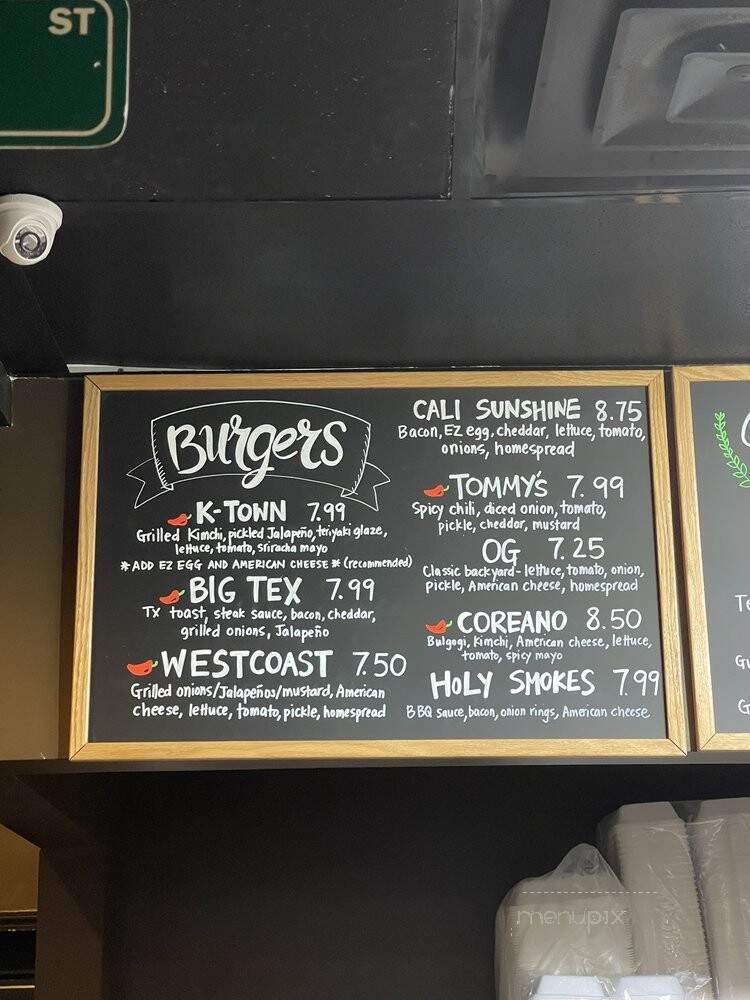 ST
Burgers
K-TOWN 7.99
Grilled Kimchi, pickled Jalapeño, teriyaki glaze,
lettuce, tomato, sriracha mayo
* ADD EZ EGG AND AMERICAN CHEESE * (recommended)
BIG TEX 7.99
TX toast, steak sauce, bacon, cheddar,
grilled onions, Jalapeño
WESTCOAST 7.50
Grilled onions/Jalapeños/mustard, American
cheese, lettuce, tomato, pickle, homespread
CALI SUNSHINE 8.75
Bacon, EZ egg, cheddar, lettuce, tomato,
onions, homespread
TOMMY'S 7.99
Spicy chili, diced onion, tomato,
pickle, cheddar, mustard
OG 7.25
Classic backyard - lettuce, tomato, onion,
pickle, American cheese, homespread
COREANO 8.50
Bulgogi, Kimchi, American cheese, lettuce,
tomato, spicy mayo
HOLY SMOKES 7.99
BBQ sauce, bacon, onion rings, American cheese
menupix